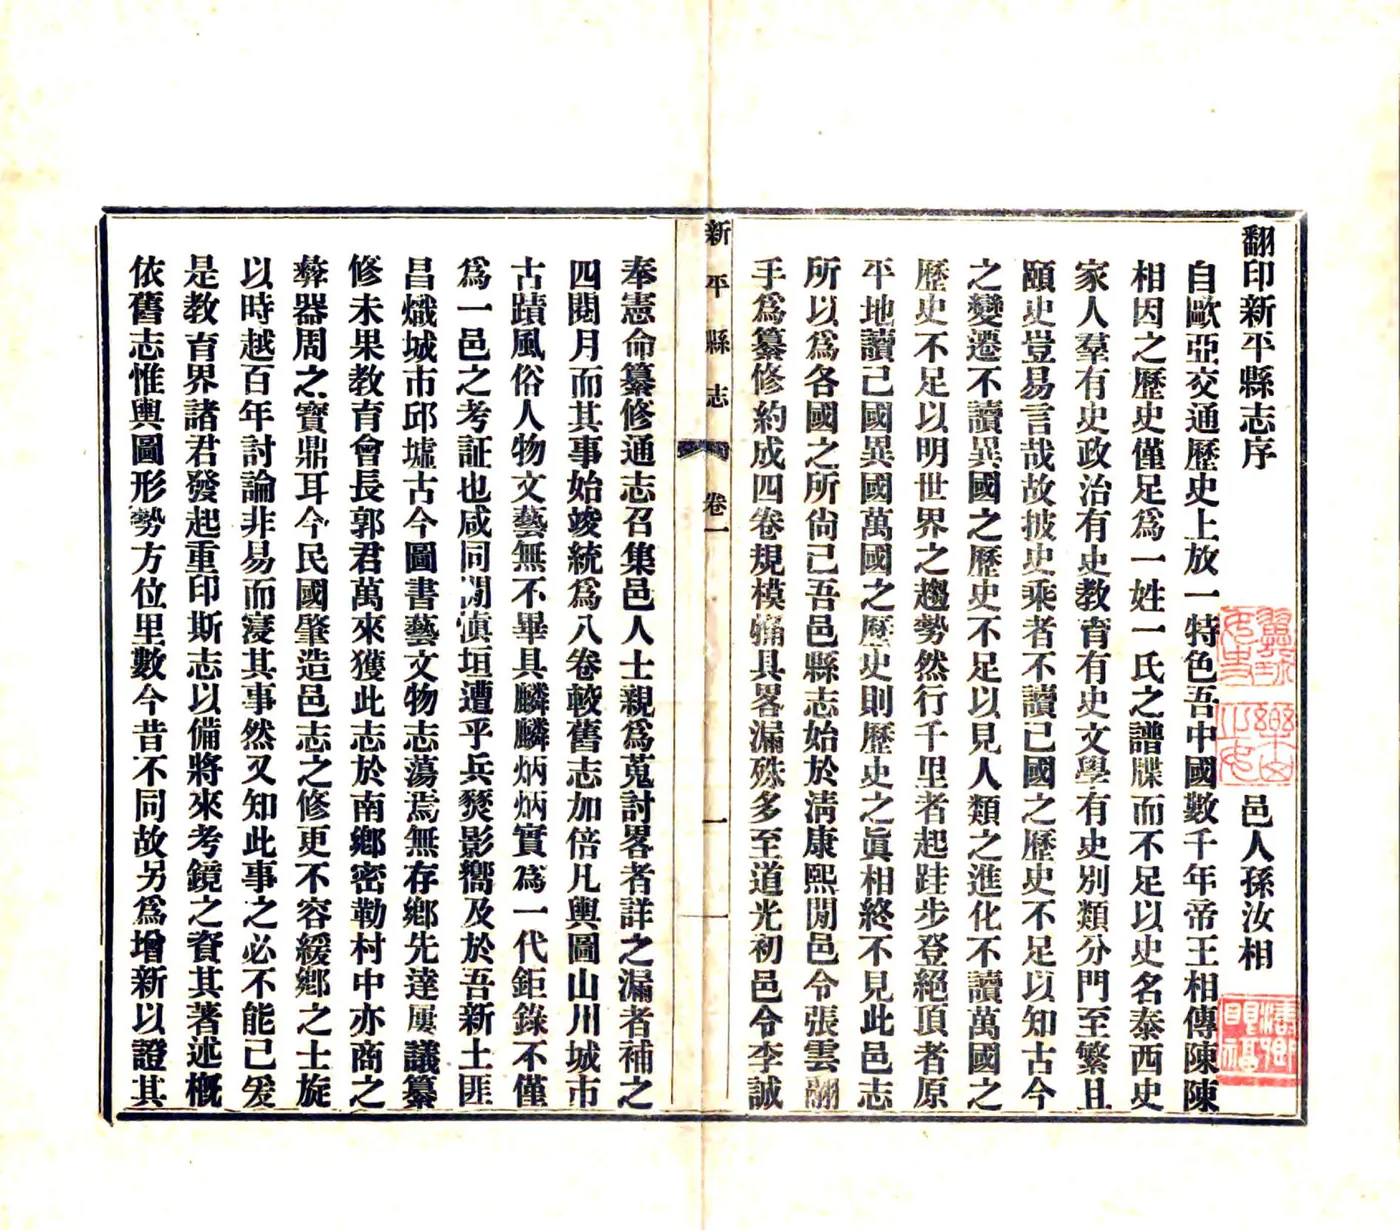 翻印新平縣志序
邑人孫汝相
自歐亞交通歷史上放一特色吾中國數千年帝王相傳陳陳
相因之歷史僅足爲一姓一氏之譜牒而不足以史名泰西史
家人羣有史政治有史教育有史文學有史別類分門至繁且
頤史豈易言哉故披史乘者不讀已國之歷史不足以知古今
之變遷不讀異國之歷史不足以見人類之進化不讀萬國之
歷史不足以明世界之趨勢然行千里者起跬步登絕頂者原
平地讀己國異國萬國之歷史則歷史之眞相終不見此邑志
所以爲各國之所尙已吾邑縣志始於淸康熙間邑令張雲翮
手爲纂修約成四卷規模粗具畧漏殊多至道光初邑令李誠
新平縣志
卷一
一
奉憲命纂修通志召集邑人士親爲蒐討畧者詳之漏者補之
四閱月而其事始竣統爲八卷較舊志加倍凡輿圖山川城市
古蹟風俗人物文藝無不畢具麟麟炳炳實爲一代鉅錄不僅
爲一邑之考証也咸同間滇垣遭乎兵燹影嚮及於吾新土匪
昌熾城市邱墟古今圖書藝文物志蕩焉無存鄉先達屢議纂
修未果教育會長郭君萬來獲此志於南鄉密勒村中亦商之
彜器周之寶鼎耳今民國肇造邑志之修更不容緩鄉之士旋
以時越百年討論非易而寖其事然又知此事之必不能已爰
是教育界諸君發起重印斯志以備將來考鏡之資其著述概
依舊志惟輿圖形勢方位里數今昔不同故另爲增新以證其